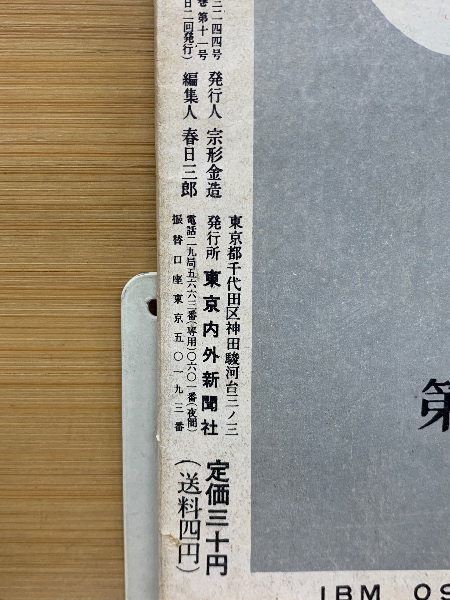 三二四四号
巻第十一号
日二回発行)
発行人 宗形金造
編集人 春日三郎
東京都千代田区神田駿河台三ノ三
発行所 東京内外新聞社
電話二九局五六六三番(専用)〇六〇一番(夜間)
振替口座東京五〇一九三番
定価三十円
(送料四円)
第
IBM